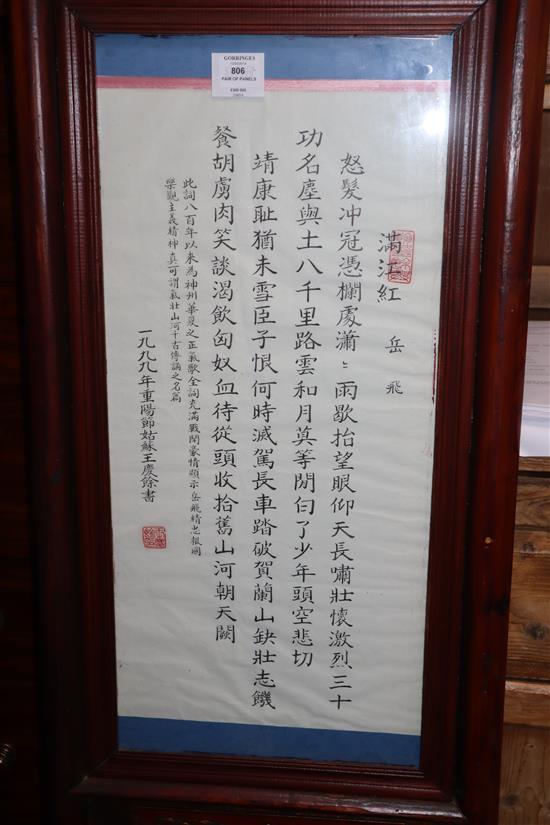 GORRINGES
806
PAIR OF PANELS
滿江紅 岳飛
怒髮冲冠憑欄處瀟〻雨歇抬望眼仰天長嘯壯懷激烈三十
功名塵與土八千里路雲和月莫等閒白了少年頭空悲切
靖康恥猶未雪臣子恨何時滅駕長車踏破賀蘭山缺壯志饑
餐胡虜肉笑談渴飲匈奴血待從頭收拾舊山河朝天闕
此詞八百年以來為神州華夏之正氣歌全詞充滿戰鬥豪情顯示岳飛精忠報國
樂觀主義精神真可謂氣壯山河千古傳誦之名篇
一九九九年重陽節姑蘇王慶餘書